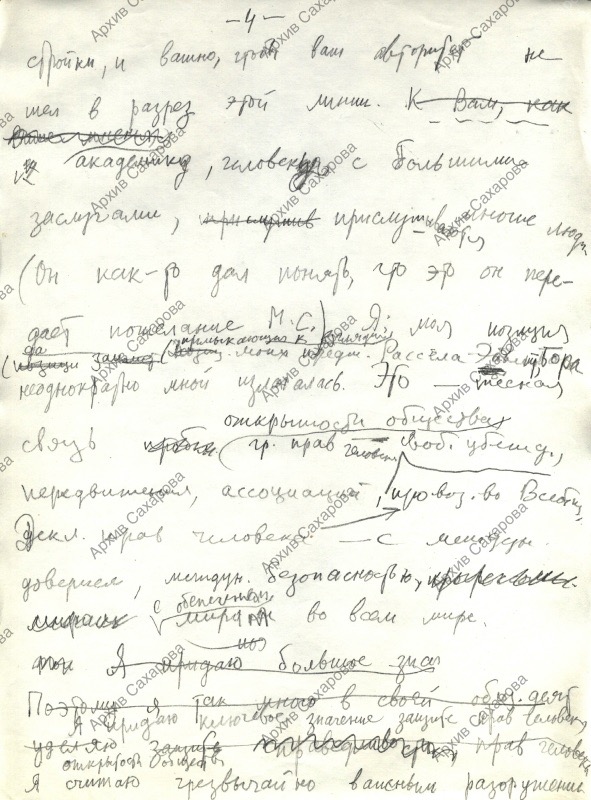 — 4 —
стройки, и важно, чтоб ваш авторитет не
шел в разрез этой линии. К Вам, как
академику, человеку с большими
заслугами, прислушиваются многие люди
(Он как-то дал понять, что это он пере-
дает пожелание М.С.) Я: моя позиция
неоднократно мной излагалась. Это — тесная
открытости общества
связь гр. прав человека свобод. убежд.,
передвижения, ассоциаций, провоз. во Всеобщ.
Декл. прав человека — с междун.
доверием, междун. безопасностью,
с обеспечением мира во всем мире.
Я придаю большое знач
Поэтому я так много в своей общ. деят
Я придаю ключевое значение защите прав человека,
уделяю защите прав человека
открытости общества,
Я считаю чрезвычайно важным разоружение
Архив Сахарова